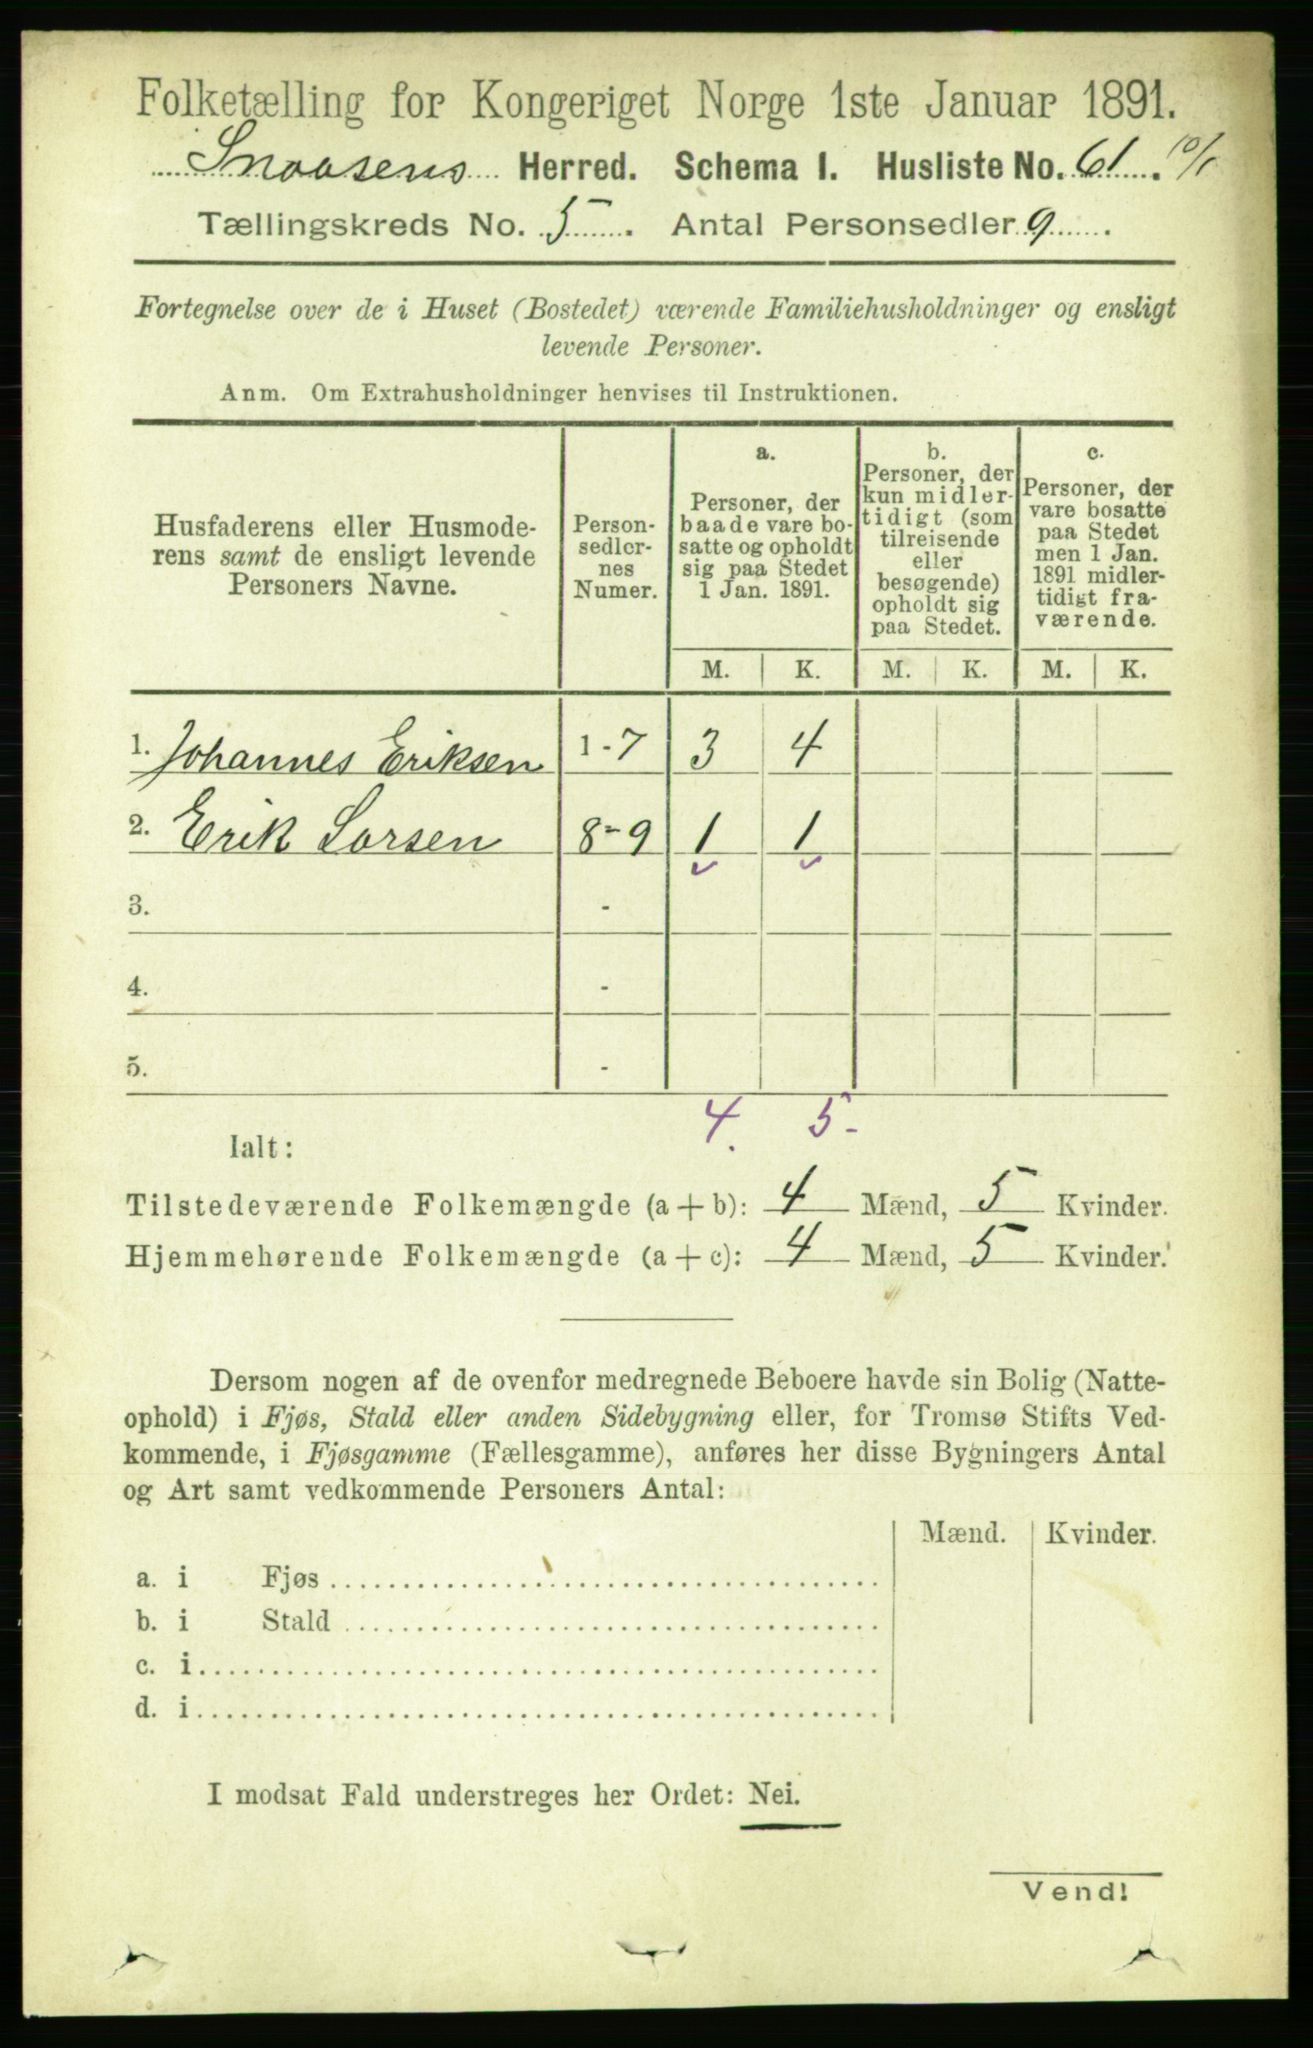 Folketælling for Kongeriget Norge 1ste Januar 1891.
Snaasens Herred. Schema I. Husliste No. 61. 10/1
Tællingskreds No. 5. Antal Personsedler 9.
Fortegnelse over de i Huset (Bostedet) værende Familiehusholdninger og ensligt
levende Personer.
Anm. Om Extrahusholdninger henvises til Instruktionen.
Husfaderens eller Husmode-
rens samt de ensligt levende
Personers Navne.
Person-
sedler-
nes
Numer.
a.
Personer, der
baade vare bo-
satte og opholdt
sig paa Stedet
1 Jan. 1891.
b.
Personer, der
kun midler-
tidigt (som
tilreisende
eller
besøgende)
opholdt sig
paa Stedet.
c.
Personer, der
vare bosatte
paa Stedet
men 1 Jan.
1891 midler-
tidigt fra-
værende.
M. K. M. K. M. K.
1. Johannes Eriksen 1-7 3 4
2. Erik Larsen 8-9 1 1
3. -
4. -
5. -
4. 5-
Ialt:
Tilstedeværende Folkemængde (a+b): 4 Mænd, 5 Kvinder.
Hjemmehørende Folkemængde (a+c): 4 Mænd, 5 Kvinder.
Dersom nogen af de ovenfor medregnede Beboere havde sin Bolig (Natte-
ophold) i Fjøs, Stald eller anden Sidebygning eller, for Tromsø Stifts Ved-
kommende, i Fjøsgamme (Fællesgamme), anføres her disse Bygningers Antal
og Art samt vedkommende Personers Antal:
Mænd. Kvinder.
a. i Fjøs
b. i Stald
c. i
d. i
I modsat Fald understreges her Ordet: Nei.
Vend!